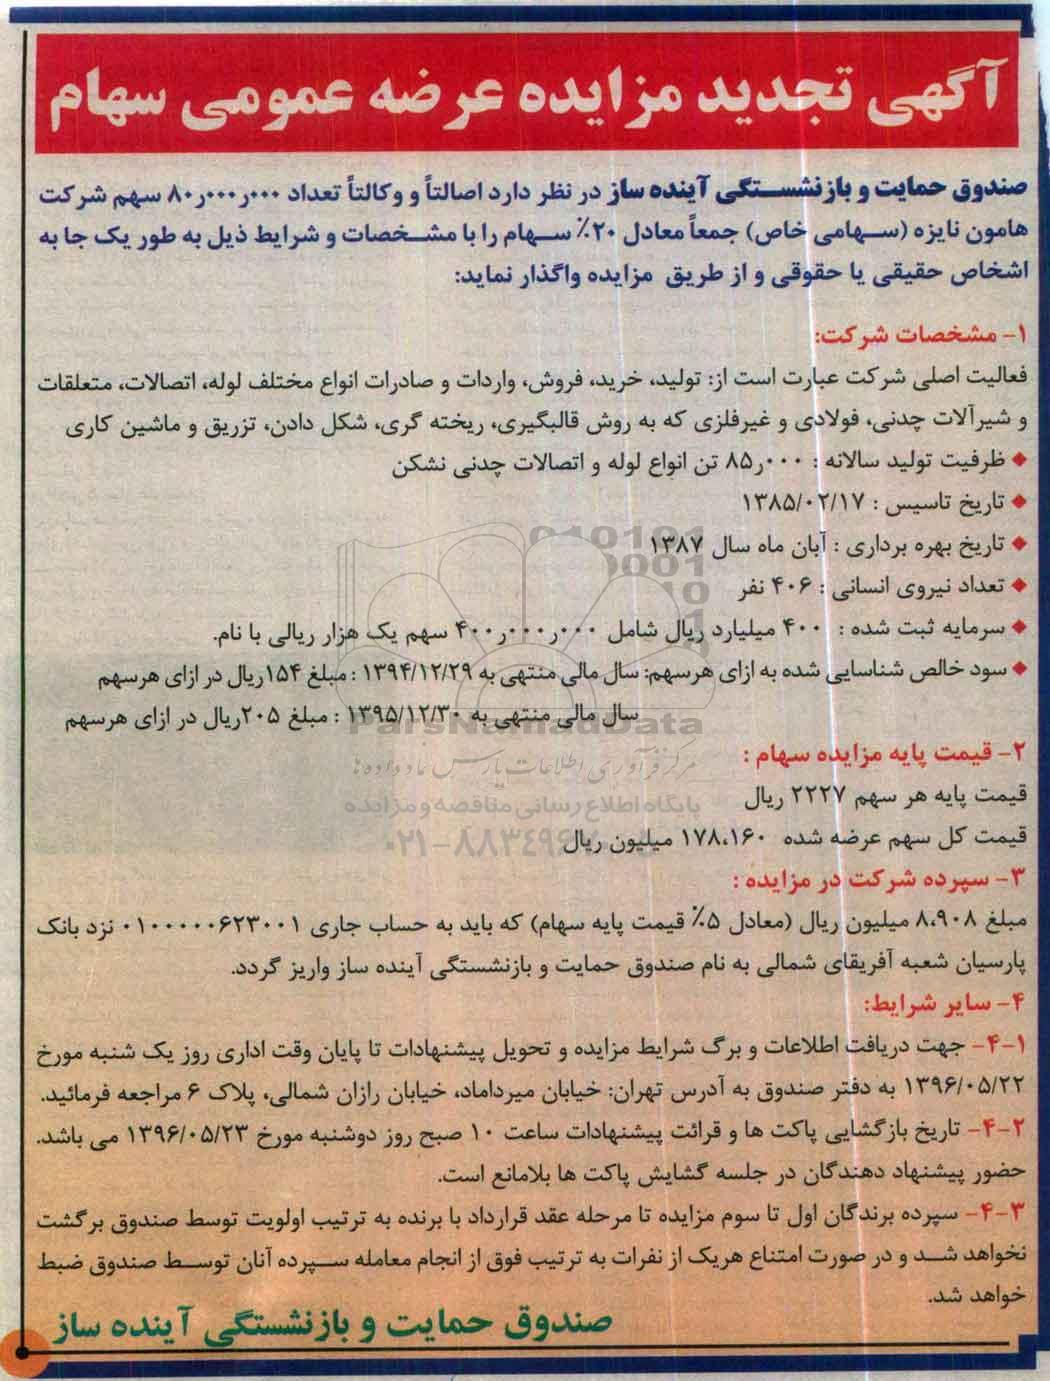 آگهی تجدید مزایده عرضه عمومی سهام
صندوق حمایت و بازنشستگی آینده ساز در نظر دارد اصالتاً و وکالتاً تعداد ۸۰٫۰۰۰٫۰۰۰ سهم شرکت
هامون نایزه (سهامی خاص) جمعاً معادل ۲۰٪ سهام را با مشخصات و شرایط ذیل به طور یک جا به
اشخاص حقیقی یا حقوقی و از طریق مزایده واگذار نماید:
۱- مشخصات شرکت:
فعالیت اصلی شرکت عبارت است از: تولید، خرید، فروش، واردات و صادرات انواع مختلف لوله، اتصالات، متعلقات
و شیرآلات چدنی، فولادی و غیرفلزی که به روش قالبگیری، ریخته گری، شکل دادن، تزریق و ماشین کاری
◆ ظرفیت تولید سالانه : ۸۵٫۰۰۰ تن انواع لوله و اتصالات چدنی نشکن
◆ تاریخ تاسیس : ۱۳۸۵/۰۲/۱۷
◆ تاریخ بهره برداری : آبان ماه سال ۱۳۸۷
◆ تعداد نیروی انسانی : ۴۰۶ نفر
◆ سرمایه ثبت شده : ۴۰۰ میلیارد ریال شامل ۴۰۰٫۰۰۰٫۰۰۰ سهم یک هزار ریالی با نام.
◆ سود خالص شناسایی شده به ازای هرسهم: سال مالی منتهی به ۱۳۹۴/۱۲/۲۹ : مبلغ ۱۵۴ ریال در ازای هرسهم
سال مالی منتهی به ۱۳۹۵/۱۲/۳۰ : مبلغ ۲۰۵ ریال در ازای هرسهم
ParsNamadData
۲- قیمت پایه مزایده سهام :
مرکز فرآوری اطلاعات پارس نماد داده ها
قیمت پایه هر سهم ۲۲۲۷ ریال
پایگاه اطلاع رسانی مناقصه و مزایده
قیمت کل سهم عرضه شده ۱۷۸،۱۶۰ میلیون ریال
۳- سپرده شرکت در مزایده :
مبلغ ۸،۹۰۸ میلیون ریال (معادل ۵٪ قیمت پایه سهام) که باید به حساب جاری ۰۱۰۰۰۰۰۶۲۳۰۰۱ نزد بانک
پارسیان شعبه آفریقای شمالی به نام صندوق حمایت و بازنشستگی آینده ساز واریز گردد.
۴- سایر شرایط:
۴-۱- جهت دریافت اطلاعات و برگ شرایط مزایده و تحویل پیشنهادات تا پایان وقت اداری روز یک شنبه مورخ
۱۳۹۶/۰۵/۲۲ به دفتر صندوق به آدرس تهران: خیابان میرداماد، خیابان رازان شمالی، پلاک ۶ مراجعه فرمائید.
۴-۲- تاریخ بازگشایی پاکت ها و قرائت پیشنهادات ساعت ۱۰ صبح روز دوشنبه مورخ ۱۳۹۶/۰۵/۲۳ می باشد.
حضور پیشنهاد دهندگان در جلسه گشایش پاکت ها بلامانع است.
۴-۳- سپرده برندگان اول تا سوم مزایده تا مرحله عقد قرارداد با برنده به ترتیب اولویت توسط صندوق برگشت
نخواهد شد و در صورت امتناع هریک از نفرات به ترتیب فوق از انجام معامله سپرده آنان توسط صندوق ضبط
خواهد شد.
صندوق حمایت و بازنشستگی آینده ساز